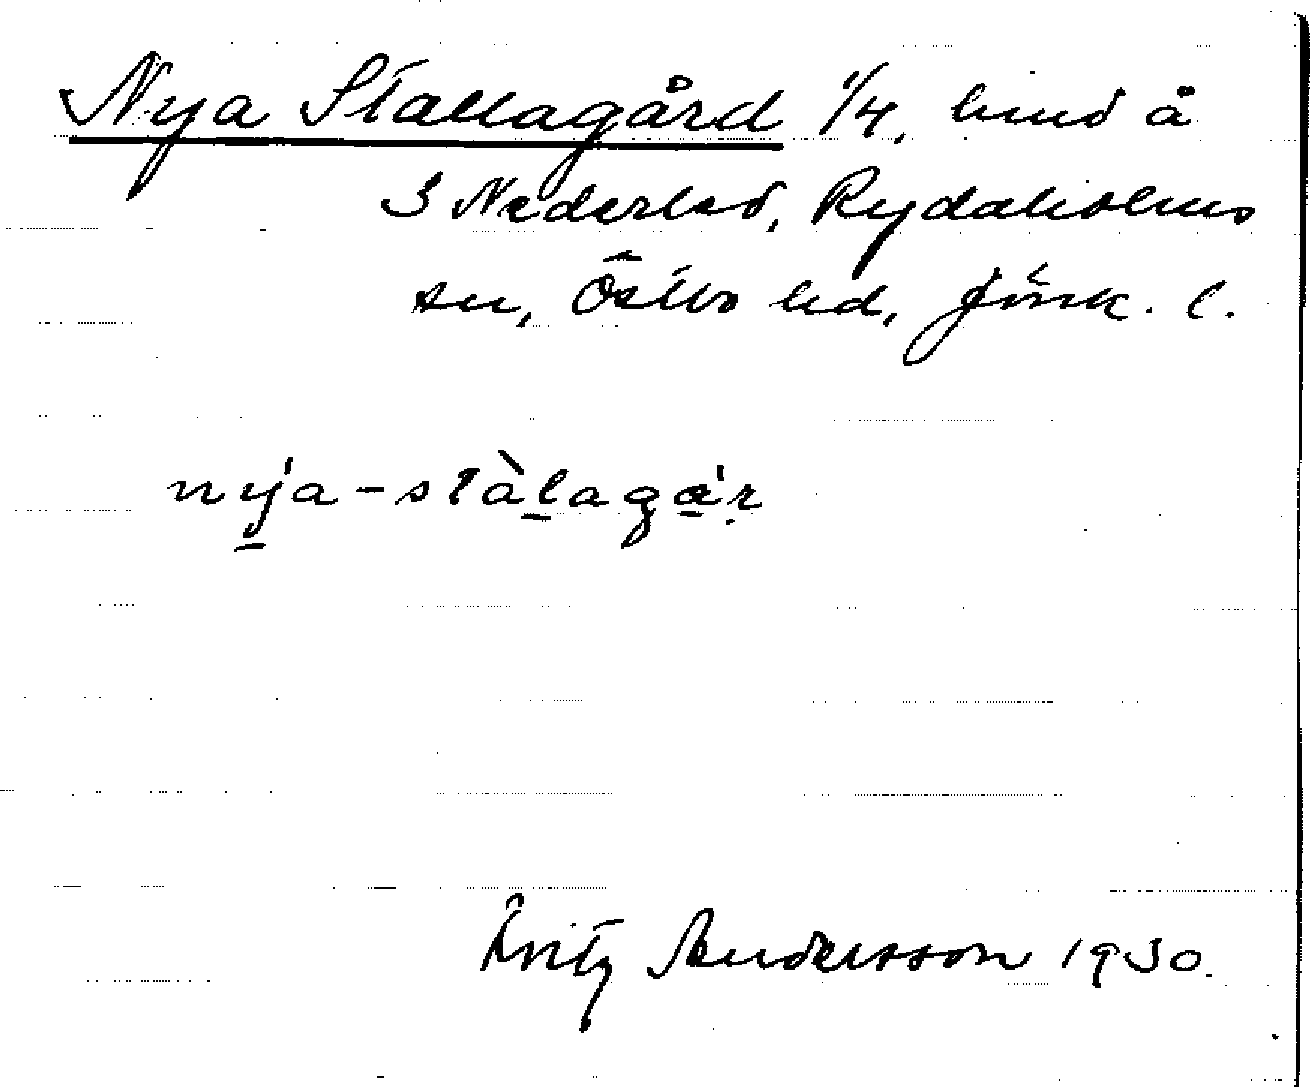 Nya Stallagård 1/4, hmd å
3 Nederled, Rydaholms
sn, Östbo hd, Jönk. l.
nýa-stàlagár
Fritz Andersson 1930.